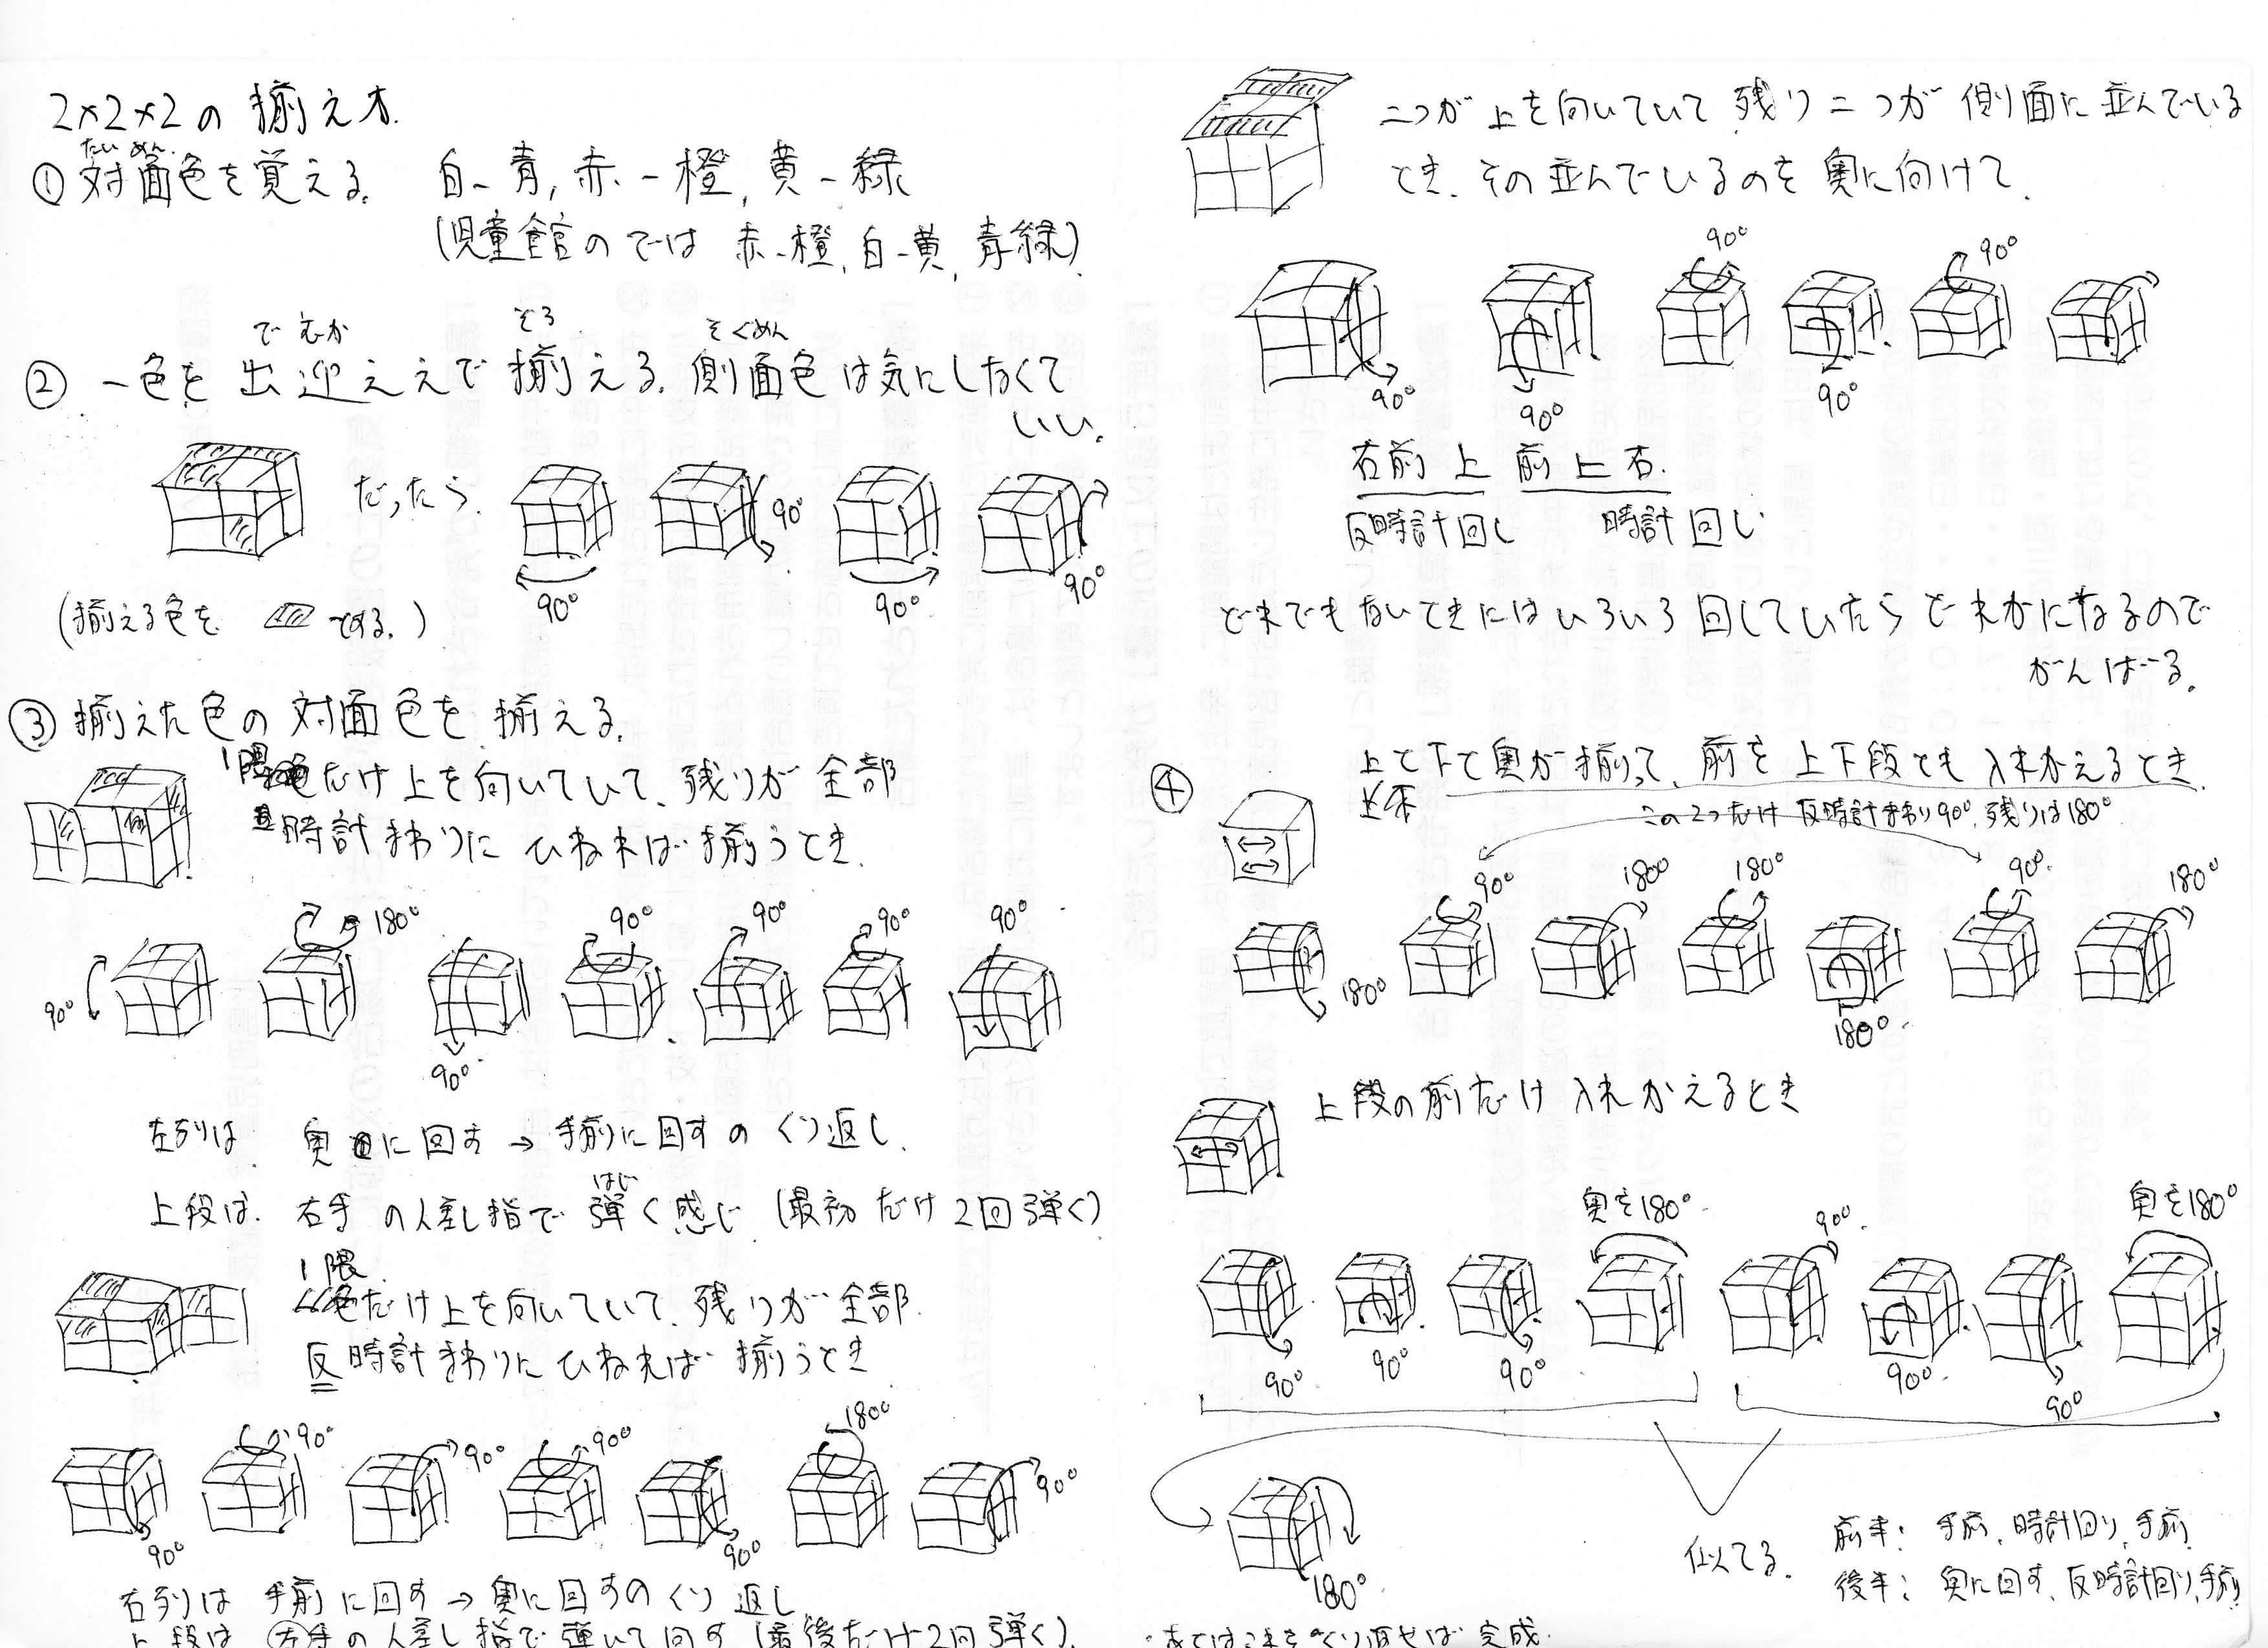 2×2×2の 揃え方.
たいめん
① 対面色を覚える. 白-青, 赤-橙, 黄-緑
(児童館のでは 赤-橙, 白-黄, 青緑)
でむか そろ そくめん
② 一色を 出迎ええで 揃える. 側面色は気にしなくて
いい.
だったら
90° 90° 90° 90°
(揃える色を とする.)
③ 揃えた色の 対面色を 揃える.
1隅だけ上を向いていて、残りが 全部
時計まわりに ひねれば 揃うとき.
90° 180° 90° 90° 90° 90° 90°
左列は 奥に回す → 手前に回すの くり返し.
はじ
上段は. 右手の人差し指で 弾く感じ (最初だけ2回弾く)
1隅
だけ上を向いていて、残りが 全部.
反時計まわりに ひねれば 揃うとき
90° 90° 90° 90° 90° 180° 90°
右列は 手前に回す → 奥に回すの くり返し
上段は 左手の人差し指で 弾いて回す (最後だけ2回弾く).
二つが上を向いていて 残り二つが 側面に並んでいる
とき. その並んでいるのを 奥に向けて.
90° 90° 90° 90° 90°
右前上 前上右.
反時計回し 時計回し
どれでもないときには いろいろ回していたらどれかになるので
がんばる.
④ 上と下と奥が揃って、前を 上下段とも 入れかえるとき
この2つだけ 反時計まわり90°. 残りは180°
180° 90° 180° 180° 180° 90° 180°
上段の前だけ 入れかえるとき
90° 90° 90° 奥を180° 90° 90° 90° 奥を180°
180°
似てる.
前半: 手前, 時計回り, 手前
後半: 奥に回す, 反時計回り, 手前
あとはこれを くり返せば 完成.